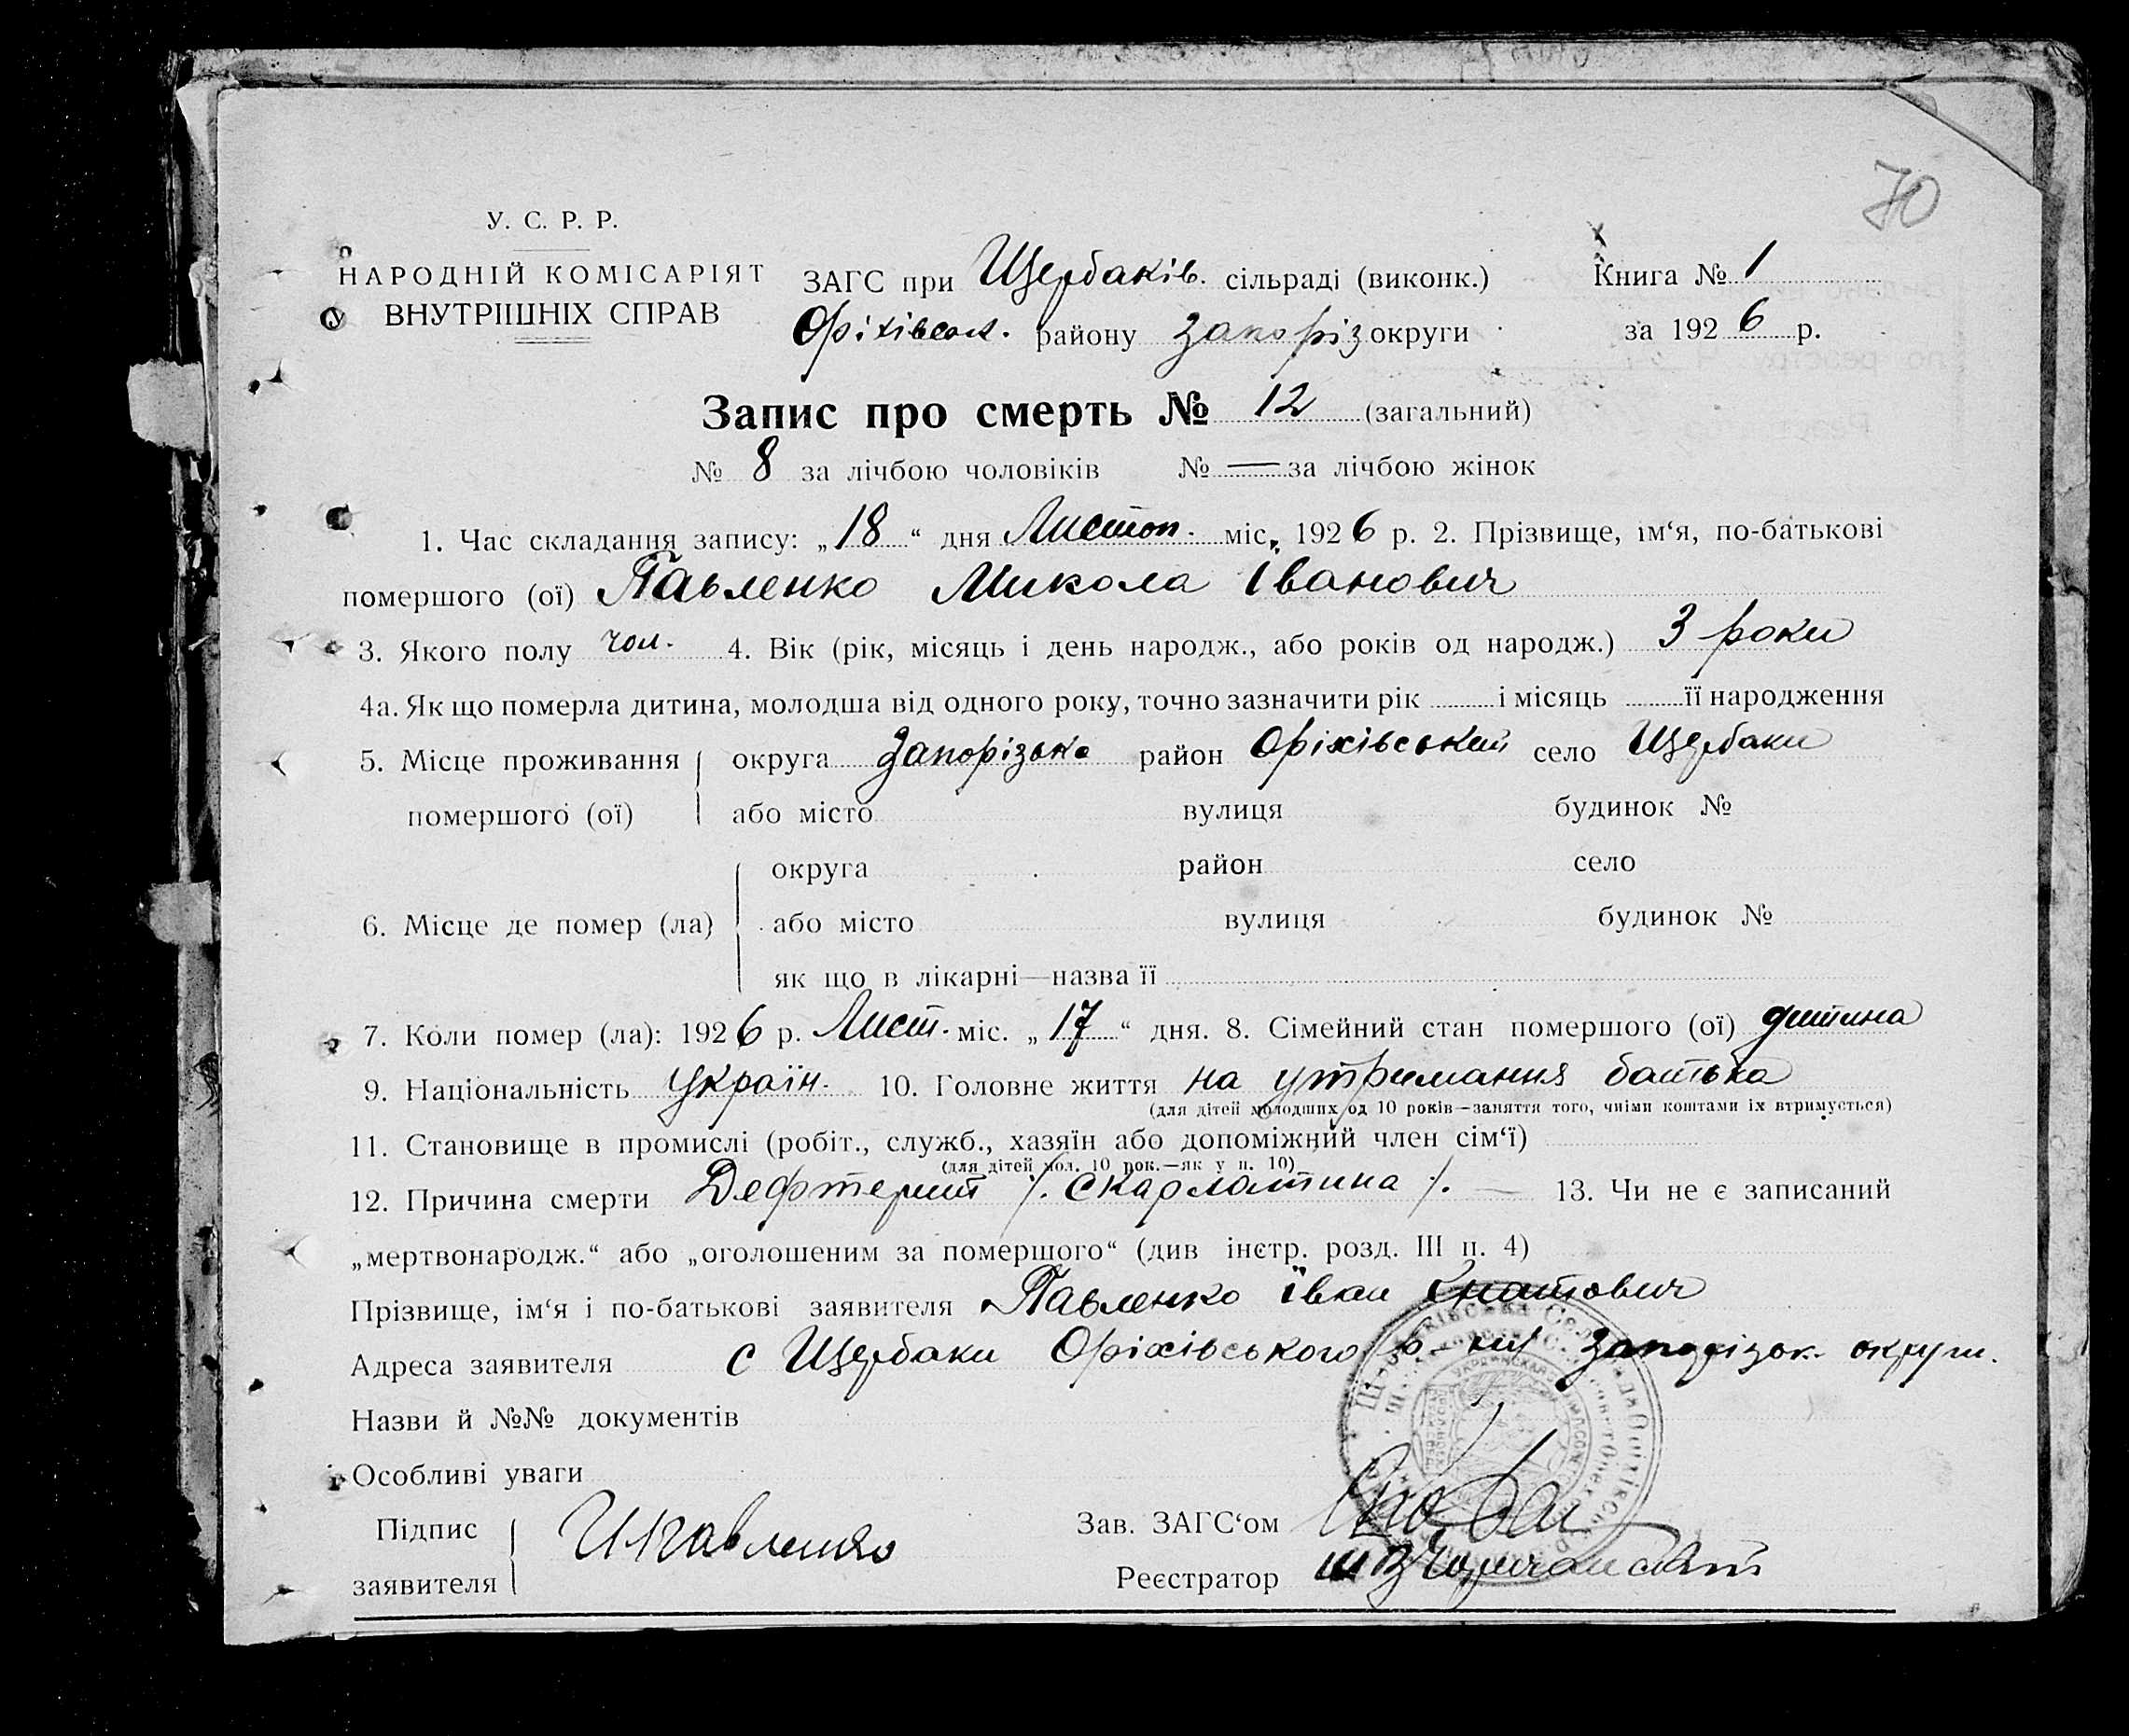 70
У. С. Р. Р.
НАРОДНІЙ КОМІСАРІЯТ
ВНУТРІШНІХ СПРАВ
ЗАГС при Щербаків. сільраді (виконк.)
Оріхівськ. району Запоріз округи
Книга № 1
за 1926 р.
Запис про смерть № 12 (загальний)
№ 8 за лічбою чоловіків № — за лічбою жінок
1. Час складання запису: „18“ дня Листоп. міс. 1926 р. 2. Прізвище, ім‘я, по-батькові
помершого (ої) Павленко Микола Іванович
3. Якого полу чол. 4. Вік (рік, місяць і день народж., або років од народж.) 3 роки
4а. Як що померла дитина, молодша від одного року, точно зазначити рік і місяць її народження
5. Місце проживання помершого (ої) округа Запорізька район Оріхівський село Щербаки
або місто вулиця будинок №
6. Місце де помер (ла) округа район село
або місто вулиця будинок №
як що в лікарні—назва її
7. Коли помер (ла): 1926 р. Лист. міс. „17“ дня. 8. Сімейний стан помершого (ої) дитина
9. Національність україн. 10. Головне життя на утримання батька
(для дітей молодших од 10 років—заняття того, чиїми коштами їх втримується)
11. Становище в промислі (робіт., служб., хазяїн або допоміжний член сім‘ї)
(для дітей мол. 10 рок.—як у п. 10)
12. Причина смерти Дефтерит /. скарлатина /. — 13. Чи не є записаний
„мертвонародж.“ або „оголошеним за помершого“ (див інстр. розд. III п. 4)
Прізвище, ім‘я і по-батькові заявителя Павленко Іван Гнатович
Адреса заявителя с Щербаки Оріхівського р-ну Запорізьк. округи.
Назви й №№ документів
Особливі уваги
Підпис заявителя И Павленко
Зав. ЗАГС‘ом
Реєстратор